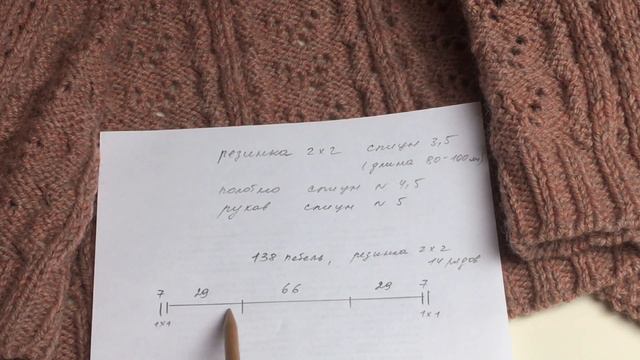 резинка 2×2 спицы 3,5
(длина 80-100см)
полотно спицы № 4,5
рукав спицы № 5
138 петель, резинка 2×2
14 рядов
7 29 66 29 7
1×1 1×1